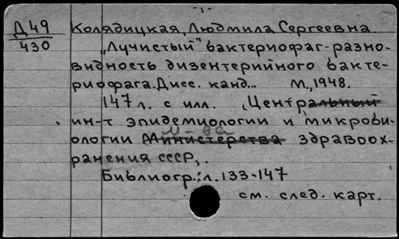 -1-
Д49
430
Колядицкая, Людмила Сергеевна.
"Лучистый" бактериофаг-разно-
видность дизентерийного бакте-
риофага. Дисс. канд... М., 1948.
147 л. с илл. (Центральный
ин-т эпидемиологии и микроби-
ологии Министерства здравоох-
ранения СССР).
Библиогр.: л. 133-147
см. след. карт.